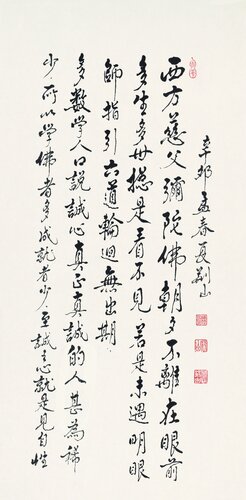 西方慈父彌陀佛朝夕不離在眼前
多生多世總是看不見若是未遇明眼
師指引六道輪迴無出期
多數学人口説誠心真正真誠的人甚為稀
少所以學佛者多成就者少至誠之心就是見自性
辛卯孟春夏荆山